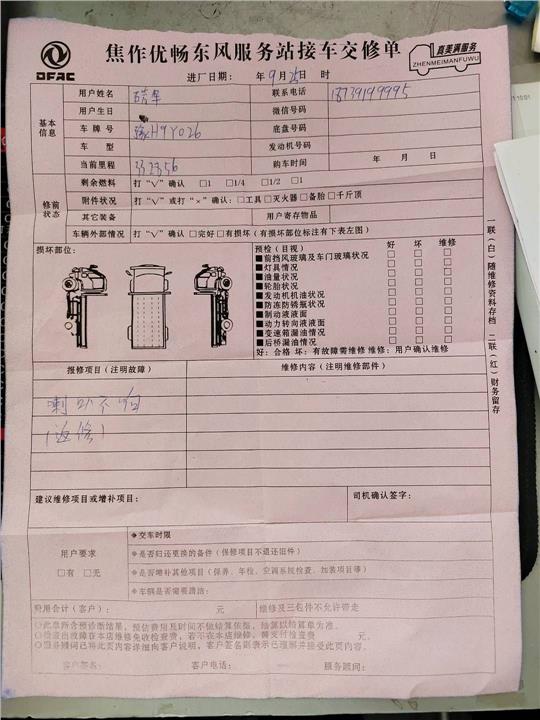 DFAC
焦作优畅东风服务站接车交修单
真美满服务
ZHENMEIMANFUWU
进厂日期： 年 9 月 25 日 时
基本信息
用户姓名
联系电话 18739199995
用户生日
微信号码
车牌号 豫H9Y026
底盘号码
车型
发动机号码
当前里程 332356
购车时间 年 月 日
修前状态
剩余燃料 打“√”确认 □1 □1/4 □1/2 □1
附件状况 打“√”或打“×”确认：□工具 □灭火器 □备胎 □千斤顶
其它装备
用户寄存物品
车辆外部情况 打“√”确认 □完好 □有损坏（有损坏部位标注有下表左图）
损坏部位：
预检（目视） 好 坏 维修
■前挡风玻璃及车门玻璃状况 □ □ □
■灯具情况 □ □ □
■油量状况 □ □ □
■轮胎状况 □ □ □
■发动机机油状况 □ □ □
■防冻防锈瓶状况 □ □ □
■制动液液面 □ □ □
■动力转向液液面 □ □ □
■变速箱漏油情况 □ □ □
■后桥漏油情况 □ □ □
好：合格 坏：有故障需维修 维修：用户确认维修
报修项目（注明故障）
维修内容（注明维修部件）
喇叭不响
（返修）
建议维修项目或增补项目：
司机确认签字：
用户要求
□有 □无
※交车时限
※是否归还更换的备件（保修项目不退还旧件）
※是否增补其他项目（保养、年检、空调系统检查、加装项目等）
※车辆是否需要清洁：
费用合计（客户）： 元
维修及三包件不允许带走
○此单所含预诊断结果，预估费用及时间不做结算依据，结算以结算单为准。
○检查出故障在本店维修免收检查费，若不在本店维修，需支付检查费 元。
○服务顾问已将此页内容详细向客户说明，客户签名则表示已理解并接受此页内容。
客户签名： 客户电话： 服务顾问：
一联（白）随维修资料存档 二联（红）财务留存